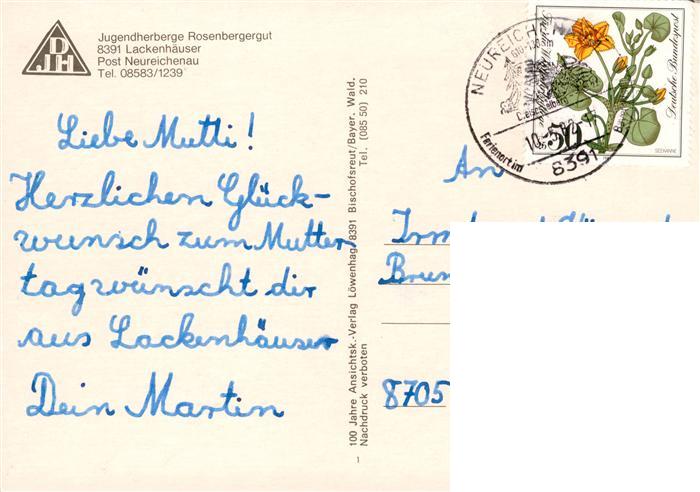 DJH
Jugendherberge Rosenbergergut
8391 Lackenhäuser
Post Neureichenau
Tel. 08583/1239
Liebe Mutti!
Herzlichen Glück-
wunsch zum Mutter
tag wünscht dir
aus Lackenhäuser
Dein Martin
100 Jahre Ansichtsk.-Verlag Löwenhag, 8391 Bischofsreut/Bayer. Wald.
Nachdruck verboten
Tel. (085 50) 210
1
Deutsche Bundespost
50
SEEKANNE
NEUREICHENAU
Ferienort im
8391
An
8705